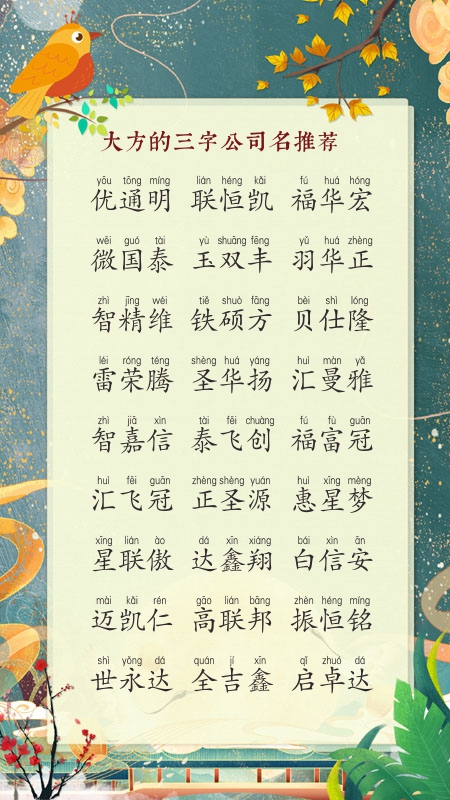 大方的三字公司名推荐
yōu tōng míng lián héng kǎi fú huá hóng
优通明 联恒凯 福华宏
wēi guó tài yù shuāng fēng yǔ huá zhèng
微国泰 玉双丰 羽华正
zhì jīng wéi tiě shuò fāng bèi shì lóng
智精维 铁硕方 贝仕隆
léi róng téng shèng huá yáng huì màn yǎ
雷荣腾 圣华扬 汇曼雅
zhì jiā xìn tài fēi chuàng fú fù guān
智嘉信 泰飞创 福富冠
huì fēi guān zhèng shèng yuán huì xīng mèng
汇飞冠 正圣源 惠星梦
xīng lián ào dá xīn xiáng bái xìn ān
星联傲 达鑫翔 白信安
mài kǎi rén gāo lián bāng zhèn héng míng
迈凯仁 高联邦 振恒铭
shì yǒng dá quán jí xīn qǐ zhuó dá
世永达 全吉鑫 启卓达